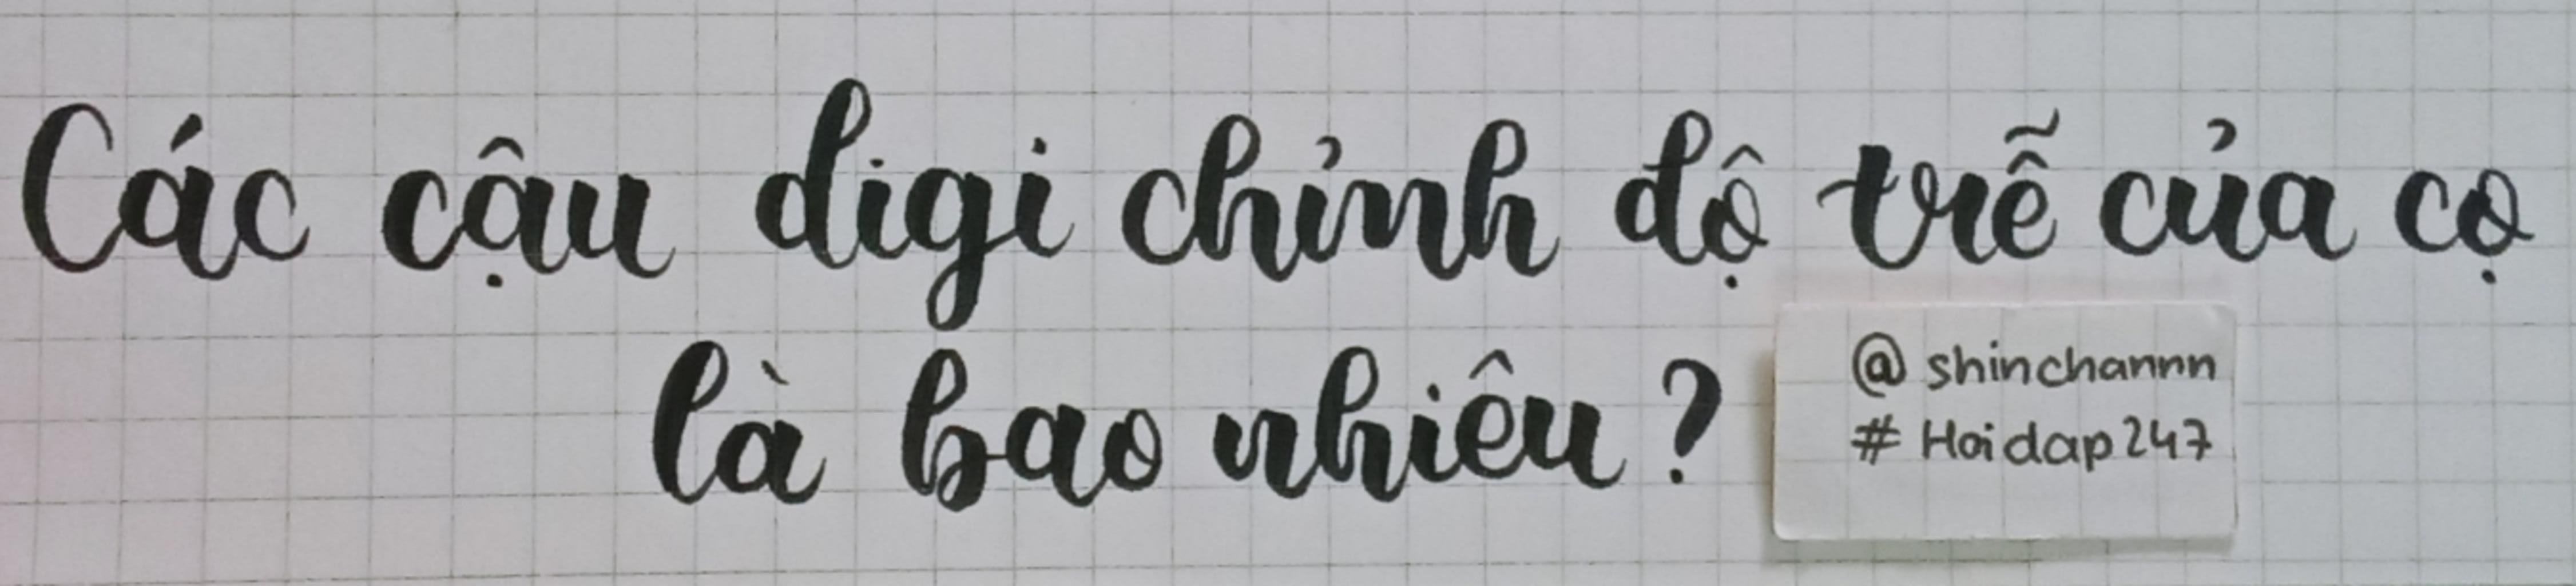 Các cậu digi chỉnh độ trễ của cọ
là bao nhiêu?
@ shinchannn
# Hoidap247